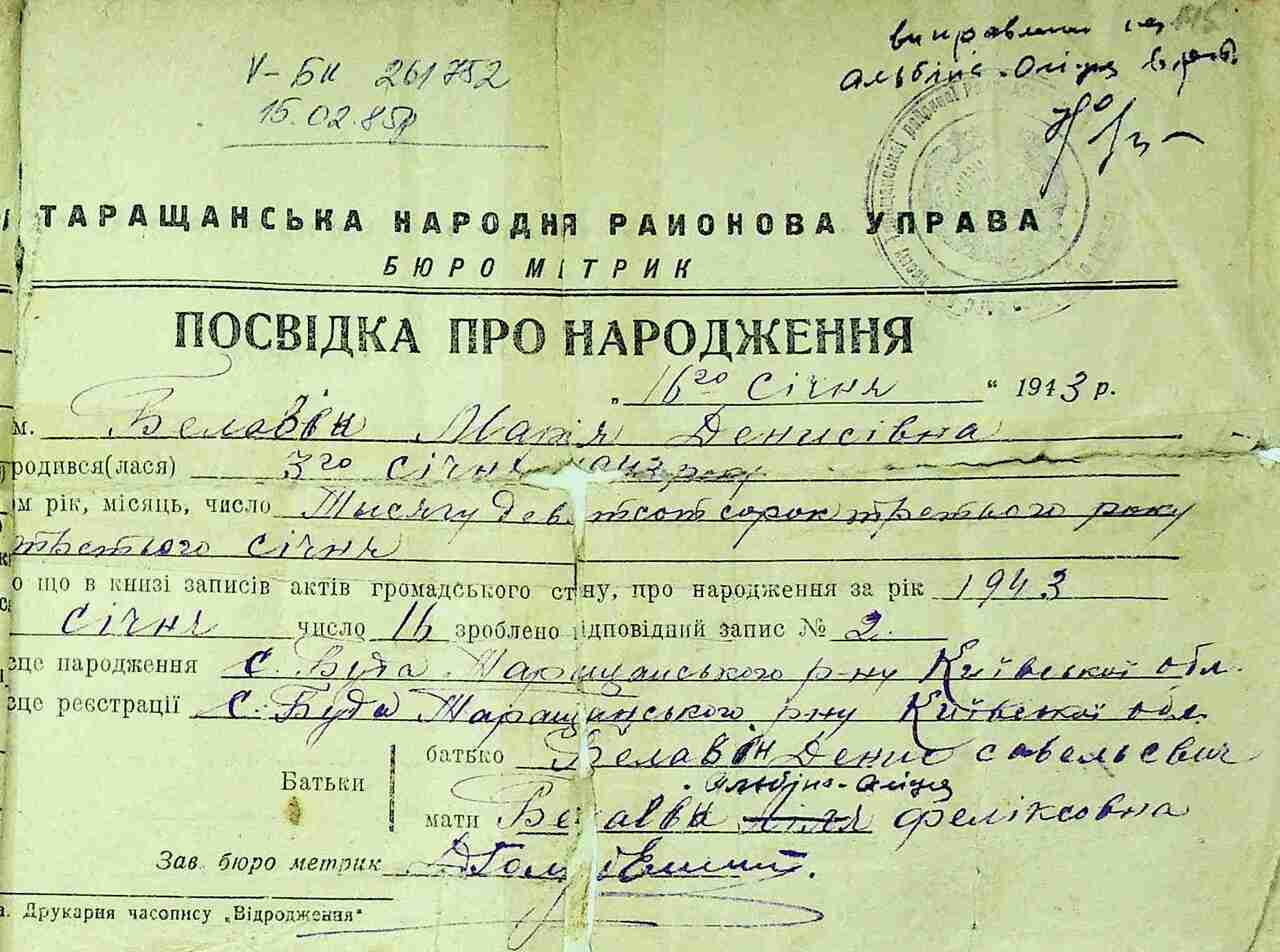 виправлені на
Альбіна-Аліца
V-БК 261752
15.02.85р
ТАРАЩАНСЬКА НАРОДНЯ РАЙОНОВА УПРАВА
БЮРО МЕТРИК
ПОСВІДКА ПРО НАРОДЖЕННЯ
„ 16го Січня “ 1943 р.
м. Белавін Марія Денисівна
родився(лася) 3го січня 1943 року
ом рік, місяць, число Тысячу девятсот сорок третього року
третього січня
о що в книзі записів актів громадського стану, про народження за рік 1943
січня число 16 зроблено відповідний запис № 2.
сце народження с. Буда Таращанського р-ну Київської обл.
сце реєстрації с. Буда Таращанського рну Київської обл.
Батьки
батько Белавін Денис Савельевич
Альбіна-Аліца
мати Белавін Ліля Феліксовна
Зав. бюро метрик
а. Друкарня часопису „Відродження“